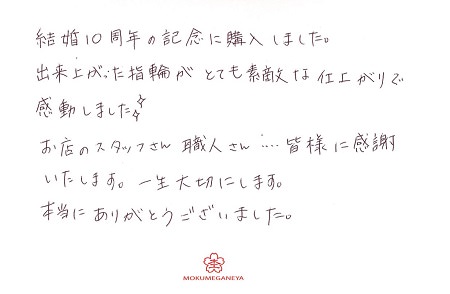 結婚10周年の記念に購入しました。
出来上がった指輪が とても素敵な仕上がりで
感動しました✨
お店のスタッフさん 職人さん…. 皆様に感謝
いたします。一生大切にします。
本当にありがとうございました。
MOKUMEGANEYA